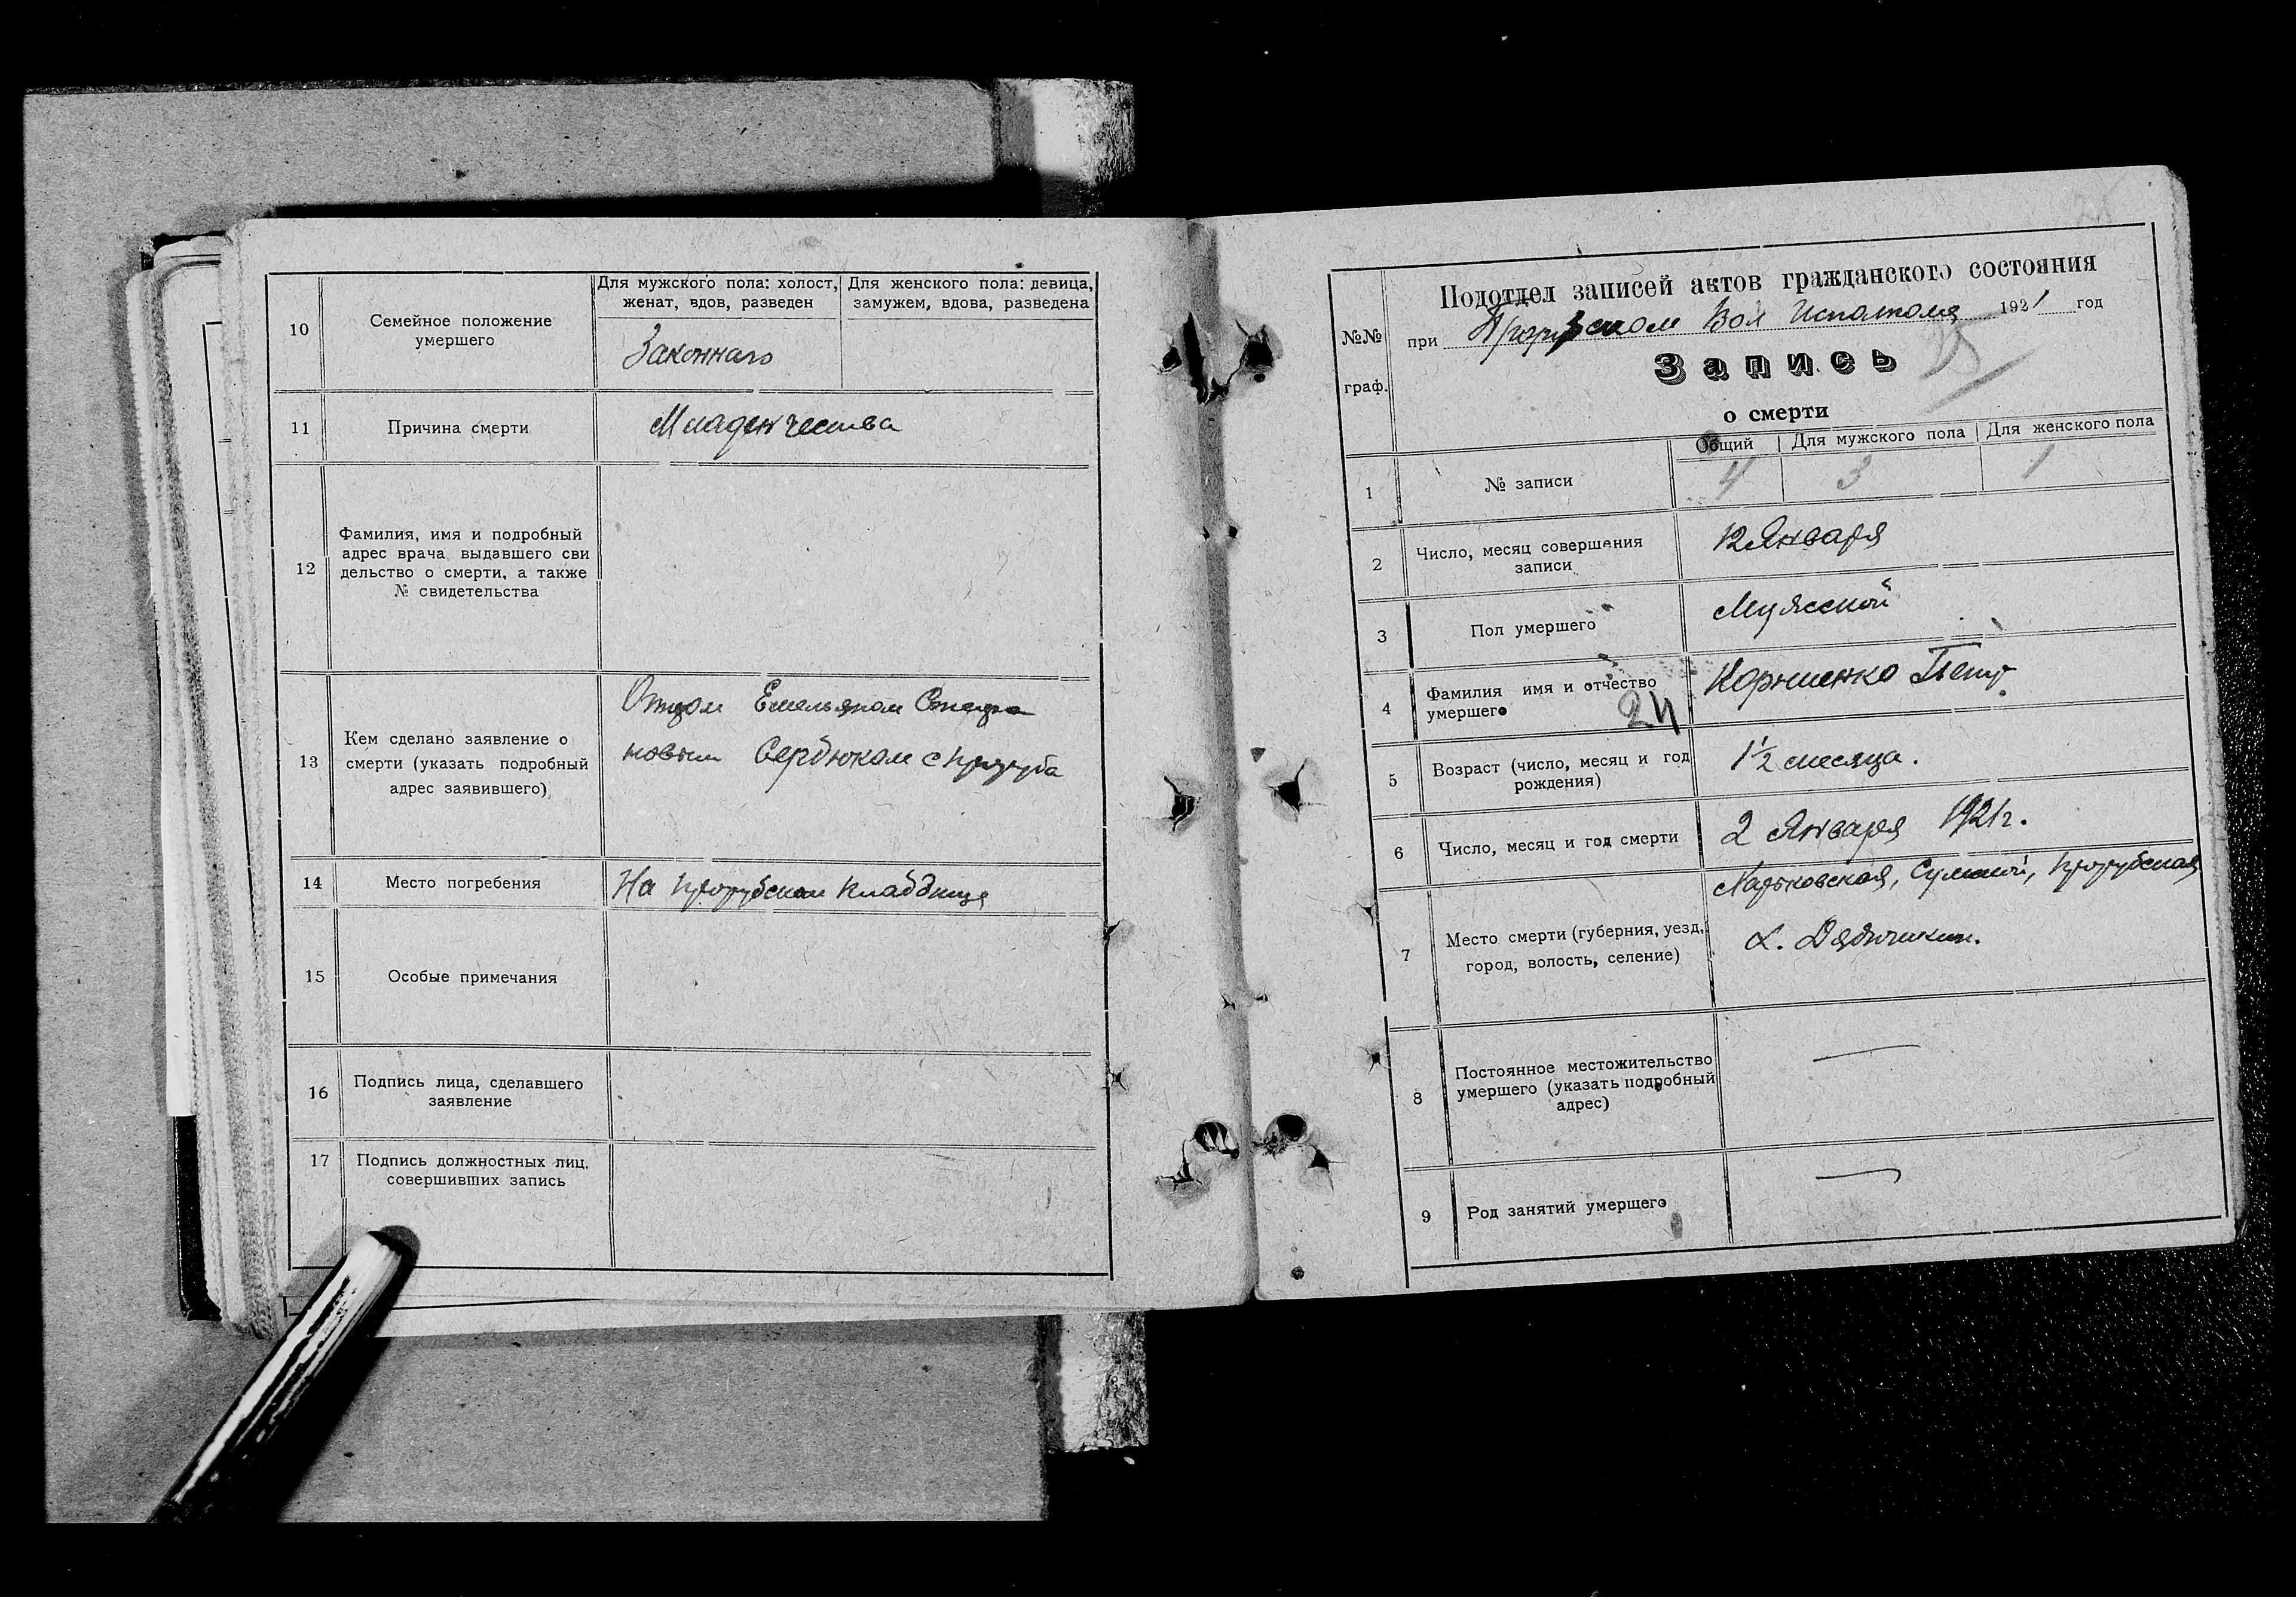 10
Семейное положение
умершего
Для мужского пола: холост,
женат, вдов, разведен
Для женского пола: девица,
замужем, вдова, разведена
Законнаго
11
Причина смерти
Младенчества
12
Фамилия, имя и подробный
адрес врача выдавшего сви
дельство о смерти, а также
№ свидетельства
13
Кем сделано заявление о
смерти (указать подробный
адрес заявившего)
Отцом Емельяном Стефа
новым Сердюком с Проруба
14
Место погребения
На Прорубском кладбище
15
Особые примечания
16
Подпись лица, сделавшего
заявление
17
Подпись должностных лиц,
совершивших запись
№№
граф.
Подотдел записей актов гражданского состояния
при Прорубском Вол Исполкоме 1921 год
Запись
25
о смерти
1
№ записи
Общий
Для мужского пола
Для женского пола
4
3
1
2
Число, месяц совершения
записи
12 Января
3
Пол умершего
Мужской
4
Фамилия имя и отчество
умершего
24
Петр
5
Возраст (число, месяц и год
рождения)
1½ месяца.
6
Число, месяц и год смерти
2 Января 1921г.
7
Место смерти (губерния, уезд,
город, волость, селение)
Харьковская, Сумской, Прорубская
х.
8
Постоянное местожительство
умершего (указать подробный
адрес)
—
9
Род занятий умершего
—